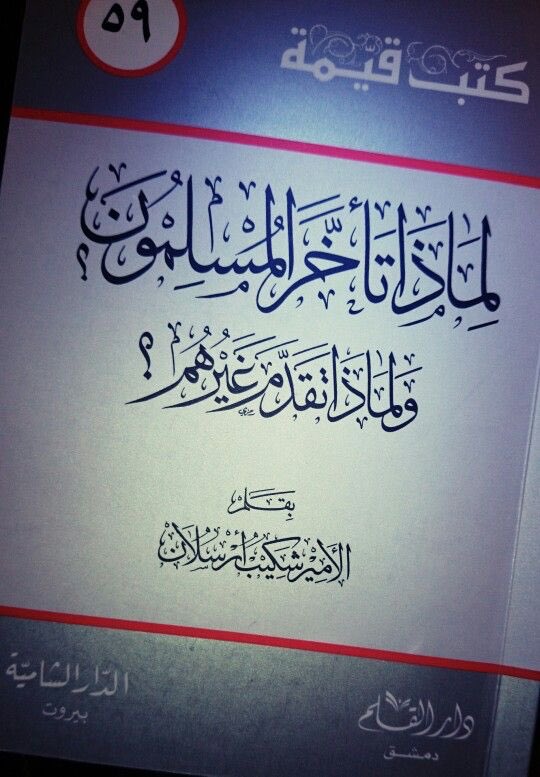 ٥٩
كتب قيّمة
لِمَاذَا تَأَخَّرَ المُسْلِمُونَ؟
وَلِمَاذَا تَقَدَّمَ غَيْرُهُمْ؟
بِقَلَم
الأمِيْر شَكِيْب أرْسْلَان
دار القلم
دمشق
الدّار الشاميّة
بيروت